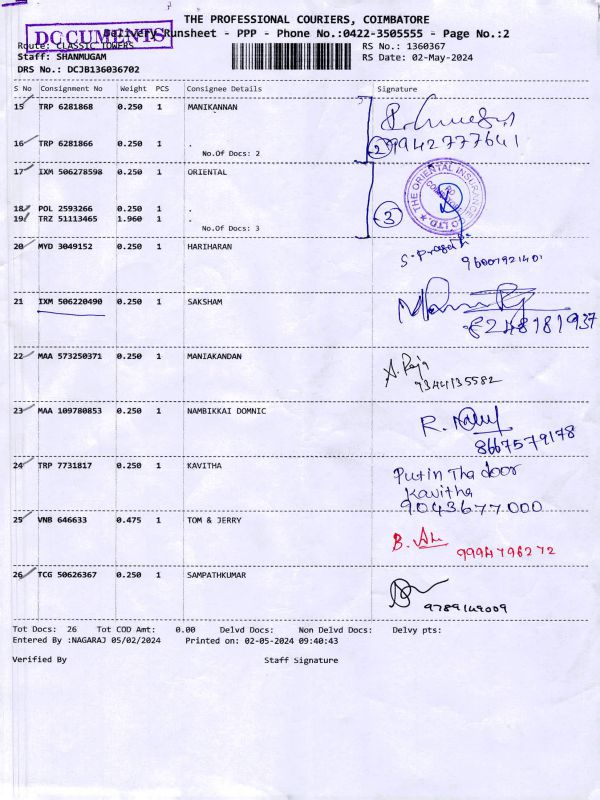 THE PROFESSIONAL COURIERS, COIMBATORE
DOCUMENTS
Delivery Runsheet - PPP - Phone No.:0422-3505555 - Page No.:2
Route: CLASSIC TOWERS RS No.: 1360367
Staff: SHANMUGAM RS Date: 02-May-2024
DRS No.: DCJB136036702
S No Consignment No Weight PCS Consignee Details Signature
15 TRP 6281868 0.250 1 MANIKANNAN
16 TRP 6281866 0.250 1 . 2 9942777641
No.Of Docs: 2
17 IXM 506278598 0.250 1 ORIENTAL
THE ORIENTAL INSURANCE CO LTD.
18 POL 2593266 0.250 1 .
19 TRZ 51113465 1.960 1 . 3
No.Of Docs: 3
20 MYD 3049152 0.250 1 HARIHARAN S. Prasath
9600792101
21 IXM 506220490 0.250 1 SAKSHAM
8248181937
22 MAA 573250371 0.250 1 MANIAKANDAN A. Raja
9344135582
23 MAA 109780853 0.250 1 NAMBIKKAI DOMNIC R.
8667579178
24 TRP 7731817 0.250 1 KAVITHA Put in Tha door
Kavitha
9043677000
25 VNB 646633 0.475 1 TOM & JERRY B.
9994796272
26 TCG 50626367 0.250 1 SAMPATHKUMAR
9789149009
Tot Docs: 26 Tot COD Amt: 0.00 Delvd Docs: Non Delvd Docs: Delvy pts:
Entered By :NAGARAJ 05/02/2024 Printed on: 02-05-2024 09:40:43
Verified By Staff Signature